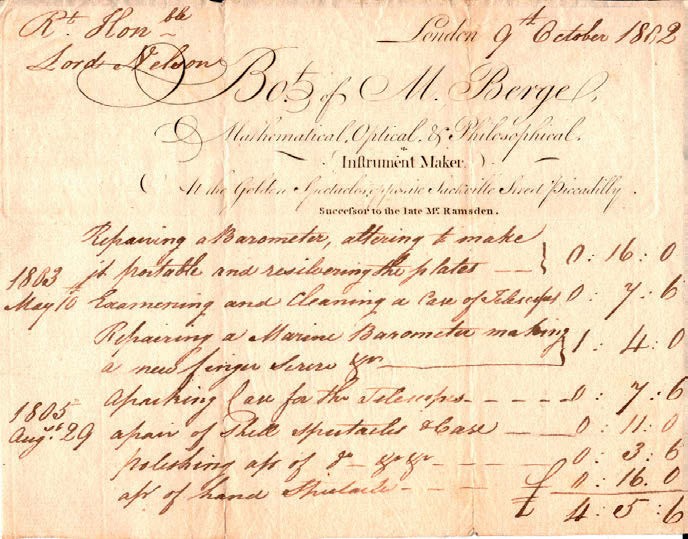 Rt. Honble
London 9th October 1802
Lord Nelson
Bot. of M. Berge,
Mathematical, Optical, & Philosophical
Instrument Maker.
At the Golden Spectacles, opposite Sackville Street Piccadilly.
Successor to the late Mr. Ramsden.
Repairing a Barometer, altering to make
it portable and resilvering the plates 0: 16: 0
1803
May 10 Examening and Cleaning a Case of Telescopes 0: 7: 6
Repairing a Marine Barometer making
a new finger screw &c 1: 4: 0
1805
a packing Case for the Telescopes 0: 7: 6
Augst 29 a pair of Shell Spectacles & Case 0: 11: 0
polishing a pr of do &c &c 0: 3: 6
a pr of hand Spectacles 0: 16: 0
£ 4: 5: 6